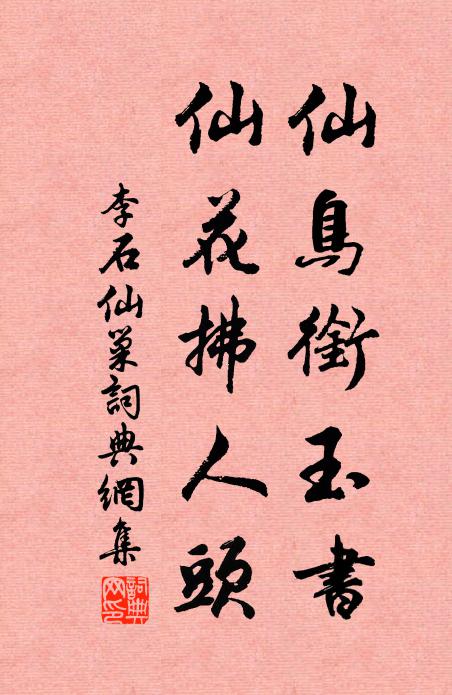 仙鳥銜玉書
仙花拂人頭
李石仙巢詞典網集
詞典網印